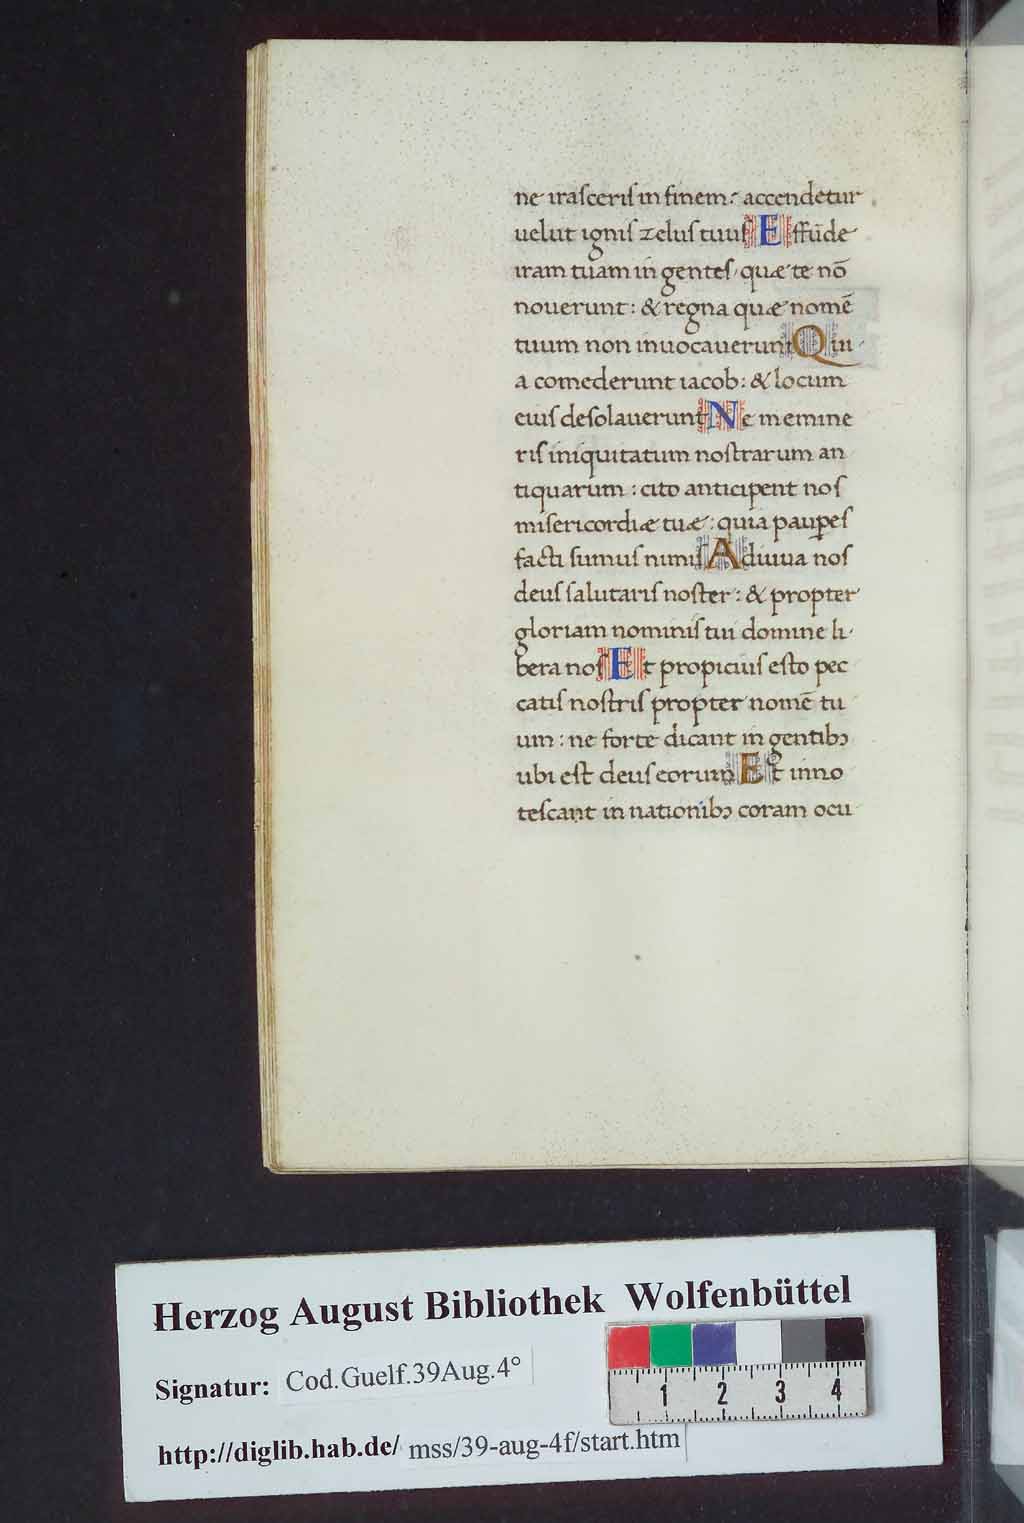 ne irasceris in finem: accendetur
uelut ignis zelus tuus Effūde
iram tuam in gentes, quæ te nō
nouerunt: & regna quæ nomē
tuum non inuocauerunt Qui
a comederunt iacob: & locum
eius desolauerunt Ne memine
ris iniquitatum nostrarum an
tiquarum: cito anticipent nos
misericordiæ tuæ: quia paup̱es
facti sumus nimis Adiuua nos
deus salutaris noster: & propter
gloriam nominis tui domine li-
bera nos Et propicius esto pec
catis nostris propter nomē tu
um: ne forte dicant in gentibꝫ
ubi est deus eorum Et inno
tescant in nationibꝫ coram ocu
Herzog August Bibliothek Wolfenbüttel
Signatur: Cod.Guelf.39Aug.4°
http://diglib.hab.de/ mss/39-aug-4f/start.htm
1 2 3 4